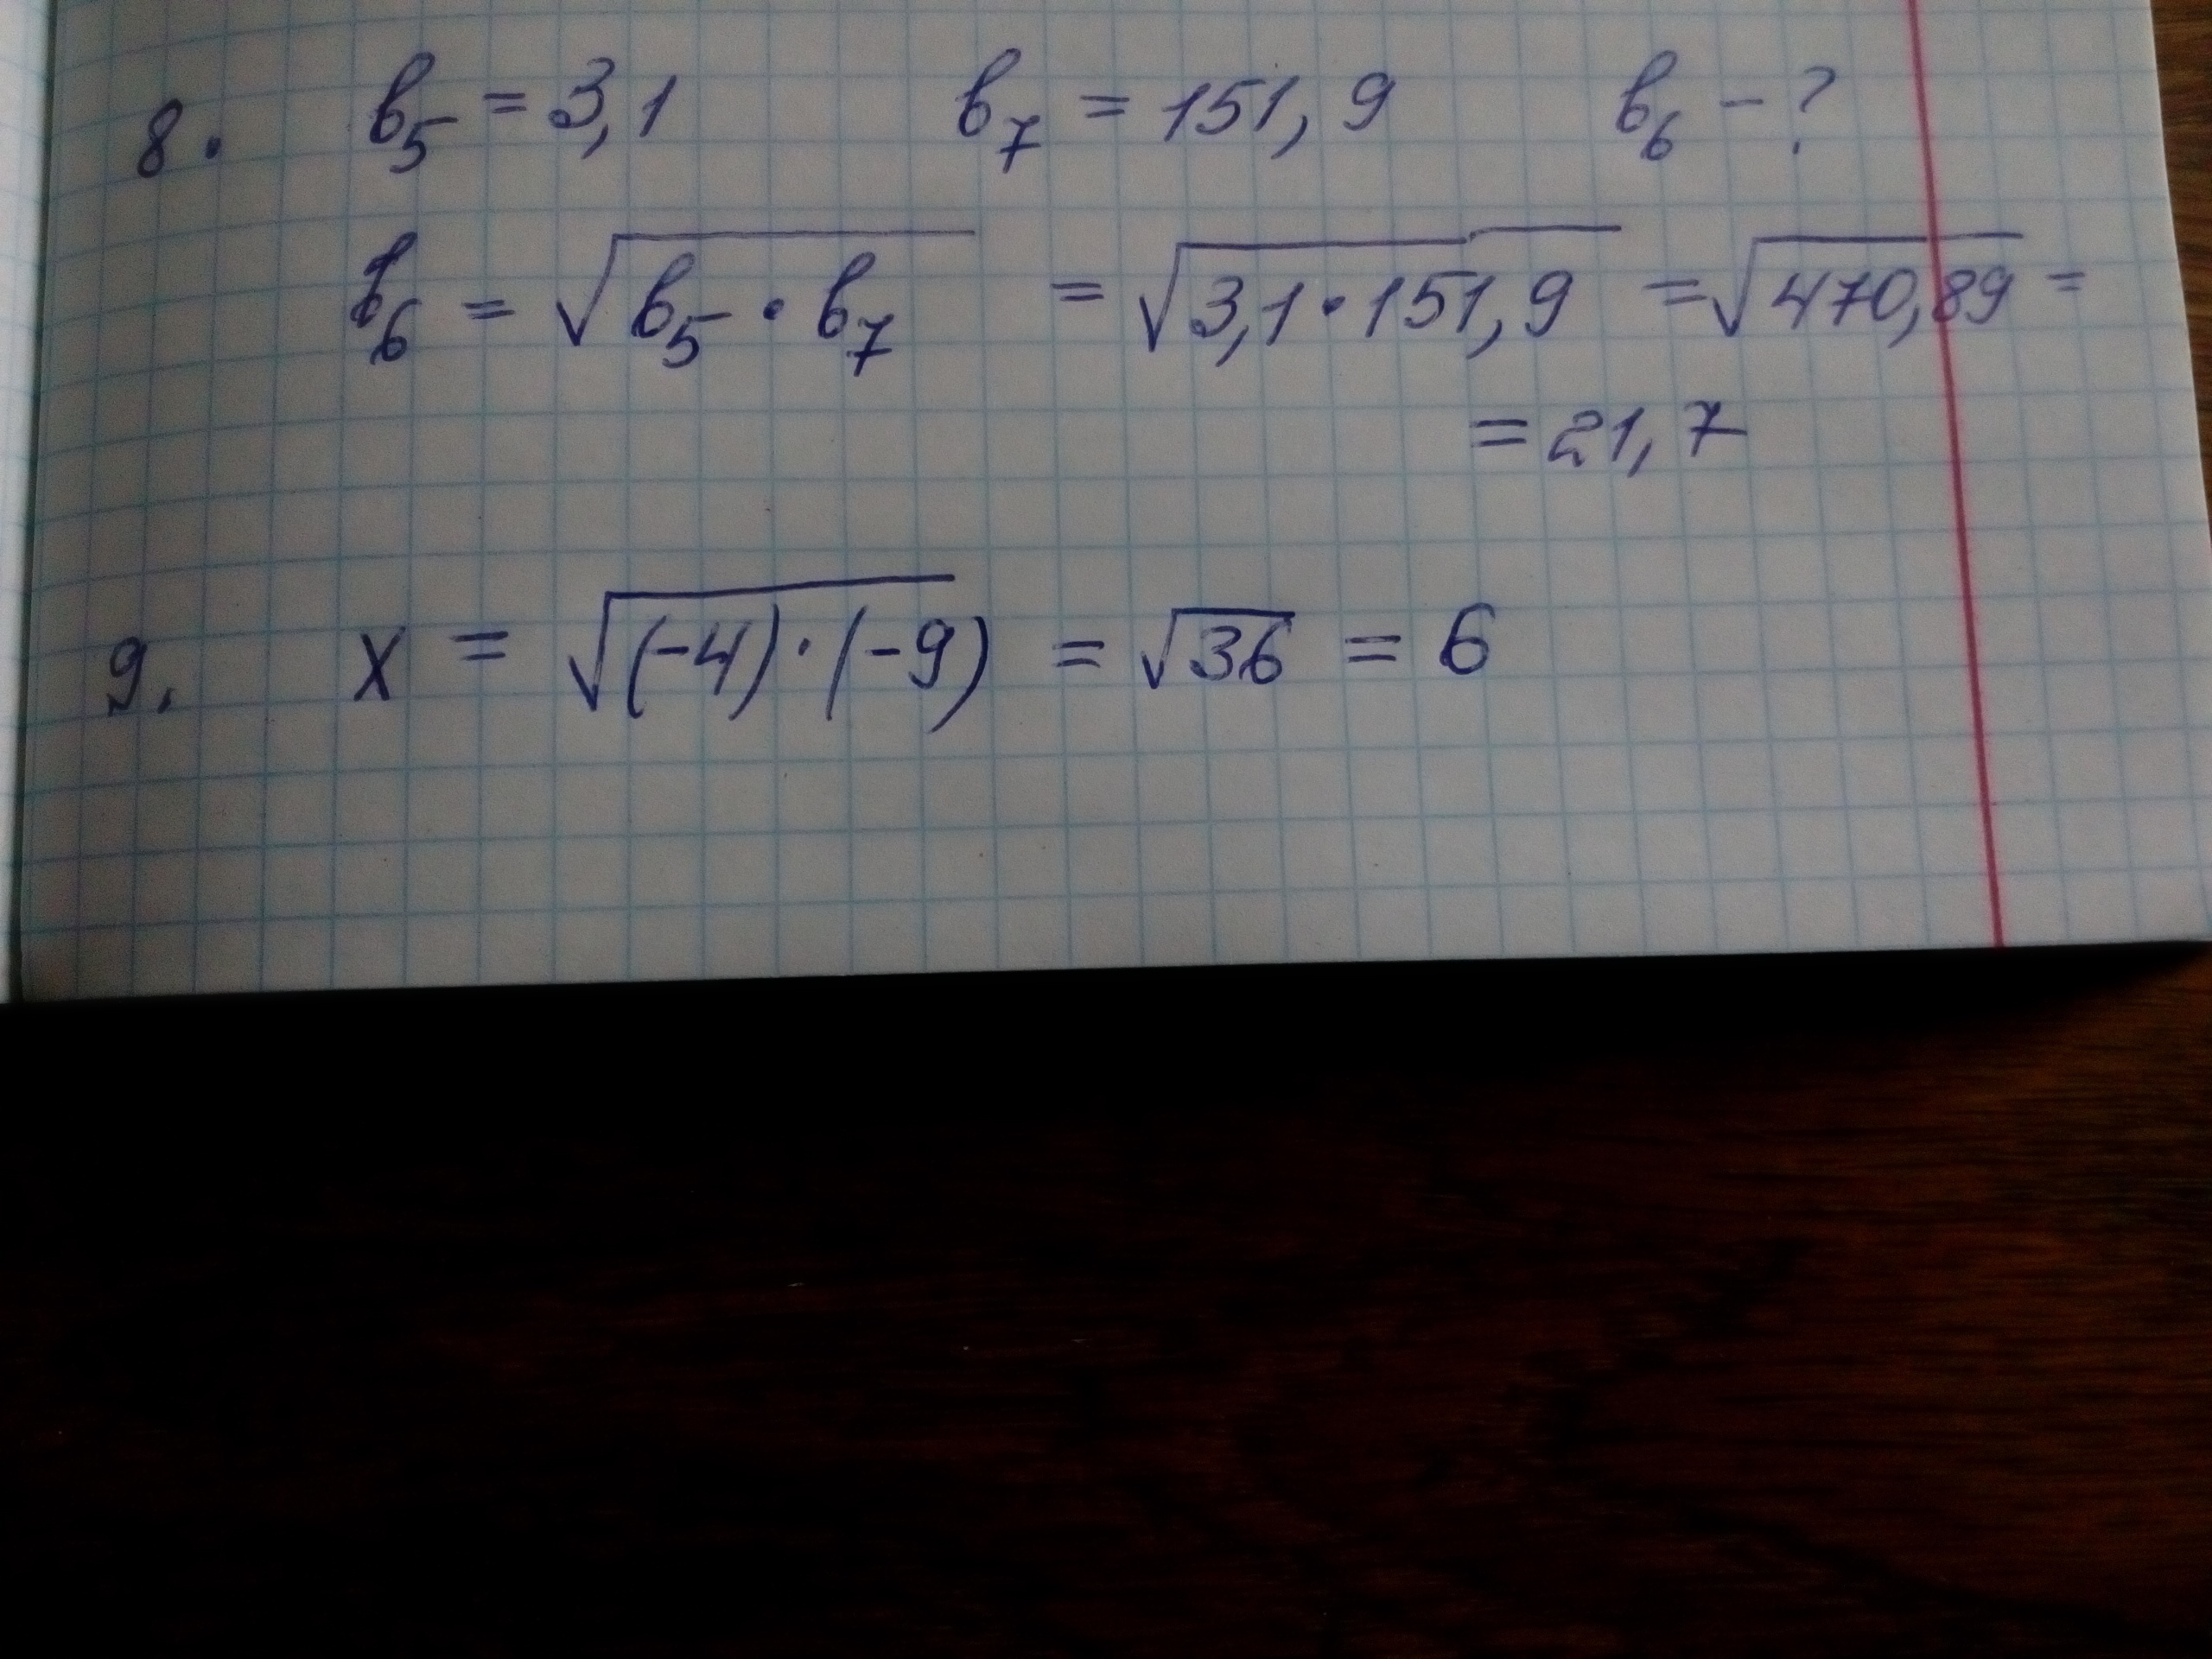 8. b₅ = 3,1 b₇ = 151,9 b₆ - ?
b₆ = √(b₅ · b₇) = √(3,1 · 151,9) = √(470,89) =
= 21,7
9. x = √((-4) · (-9)) = √36 = 6